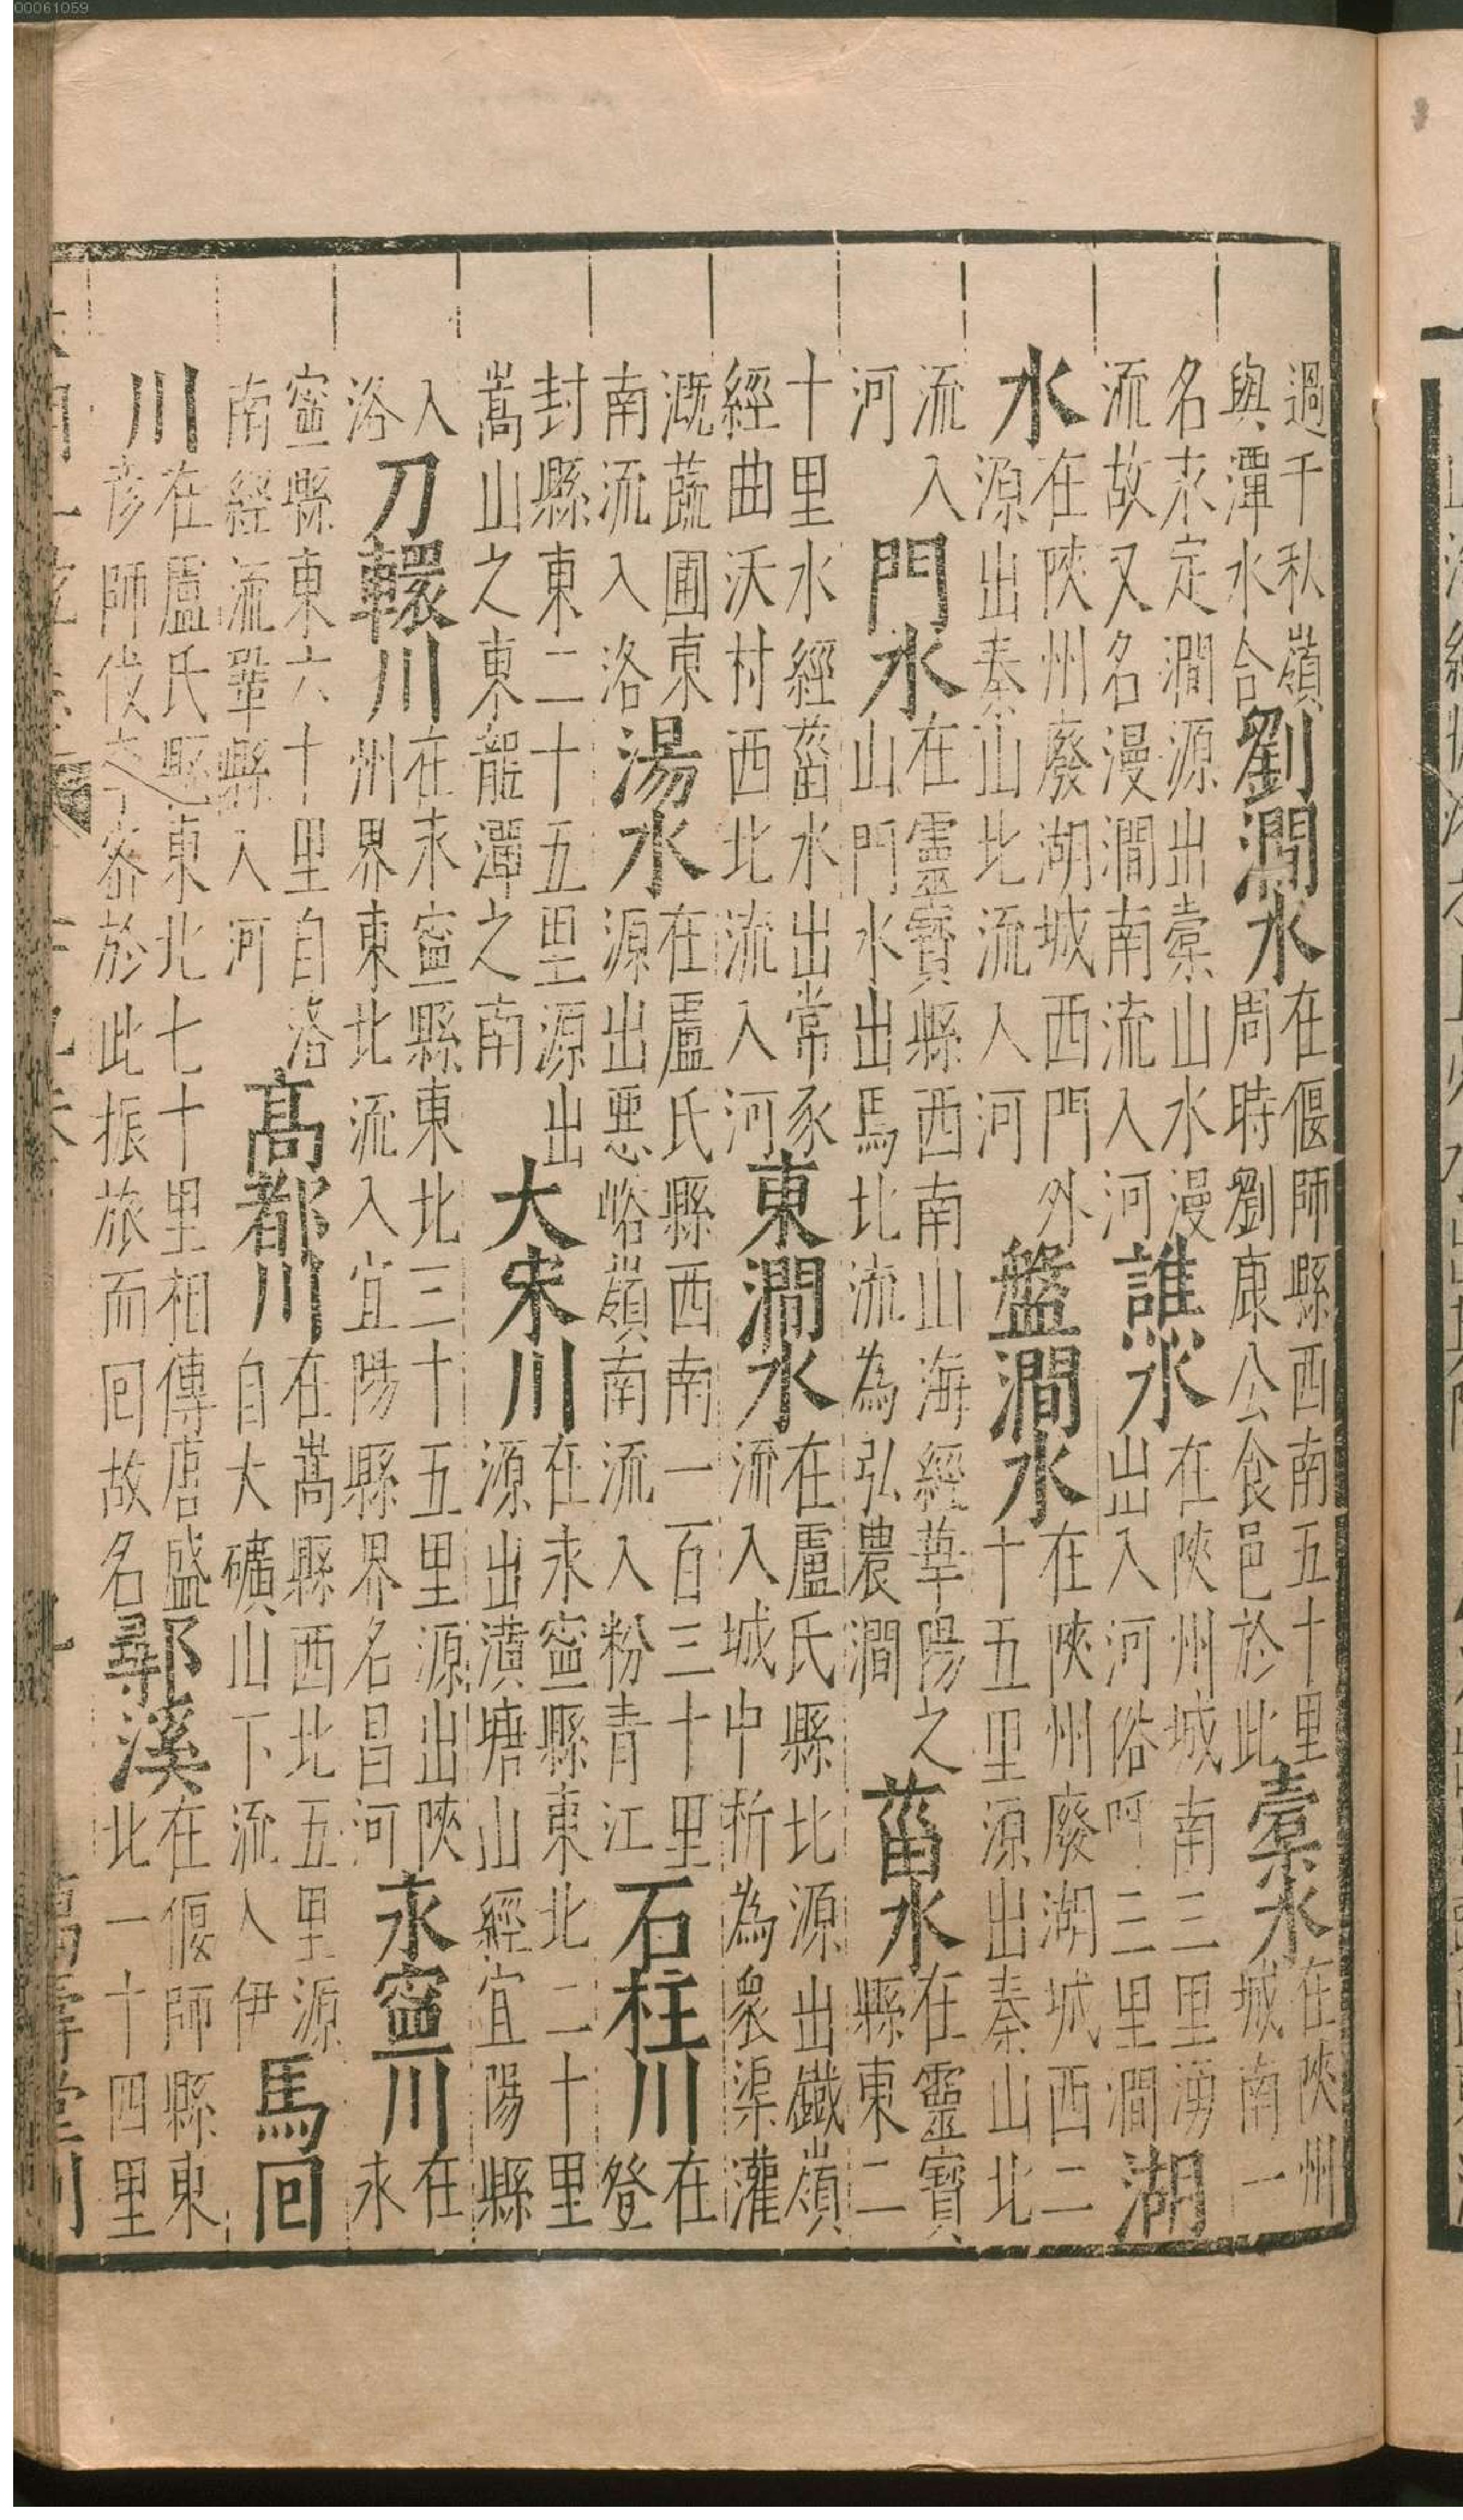 過千秋嶺與潭水合劉澗水在偃師縣西南五十里周時劉康公食邑於此橐水在陝州城南一
名永定澗源出橐山水漫流故又名漫澗南流入河譙水在陝州城南三里湧出入河俗呼三里澗湖
水在陝州廢湖城西門外源出秦山北流入河盤澗水在陝州廢湖城西二十五里源出秦山北
流入河門水在靈寶縣西南山海經華陽之山門水出焉北流為弘農澗菑水在靈寶縣東二
十里水經菑水出常豕經曲沃村西北流入河東澗水在盧氏縣北源出鐵嶺流入城中析為衆渠灌
溉蔬圃東南流入洛湯水在盧氏縣西南一百三十里源出惡峪嶺南流入粉青江石柱川在登
封縣東二十五里源出嵩山之東龍潭之南大宋川在永寧縣東北二十里源出潢塘山經宜陽縣
入洛刀轘川在永寧縣東北三十五里源出陝州界東北流入宜陽縣界名昌河永寧川在永
寧縣東六十里自洛南經流鞏縣入河高都川在嵩縣西北五里源自大礦山下流入伊馬回
川在盧氏縣東北七十里相傳唐盛彥師伐李密於此振旅而回故名鄩溪在偃師縣東北一十四里
萬壽堂刊
00061059